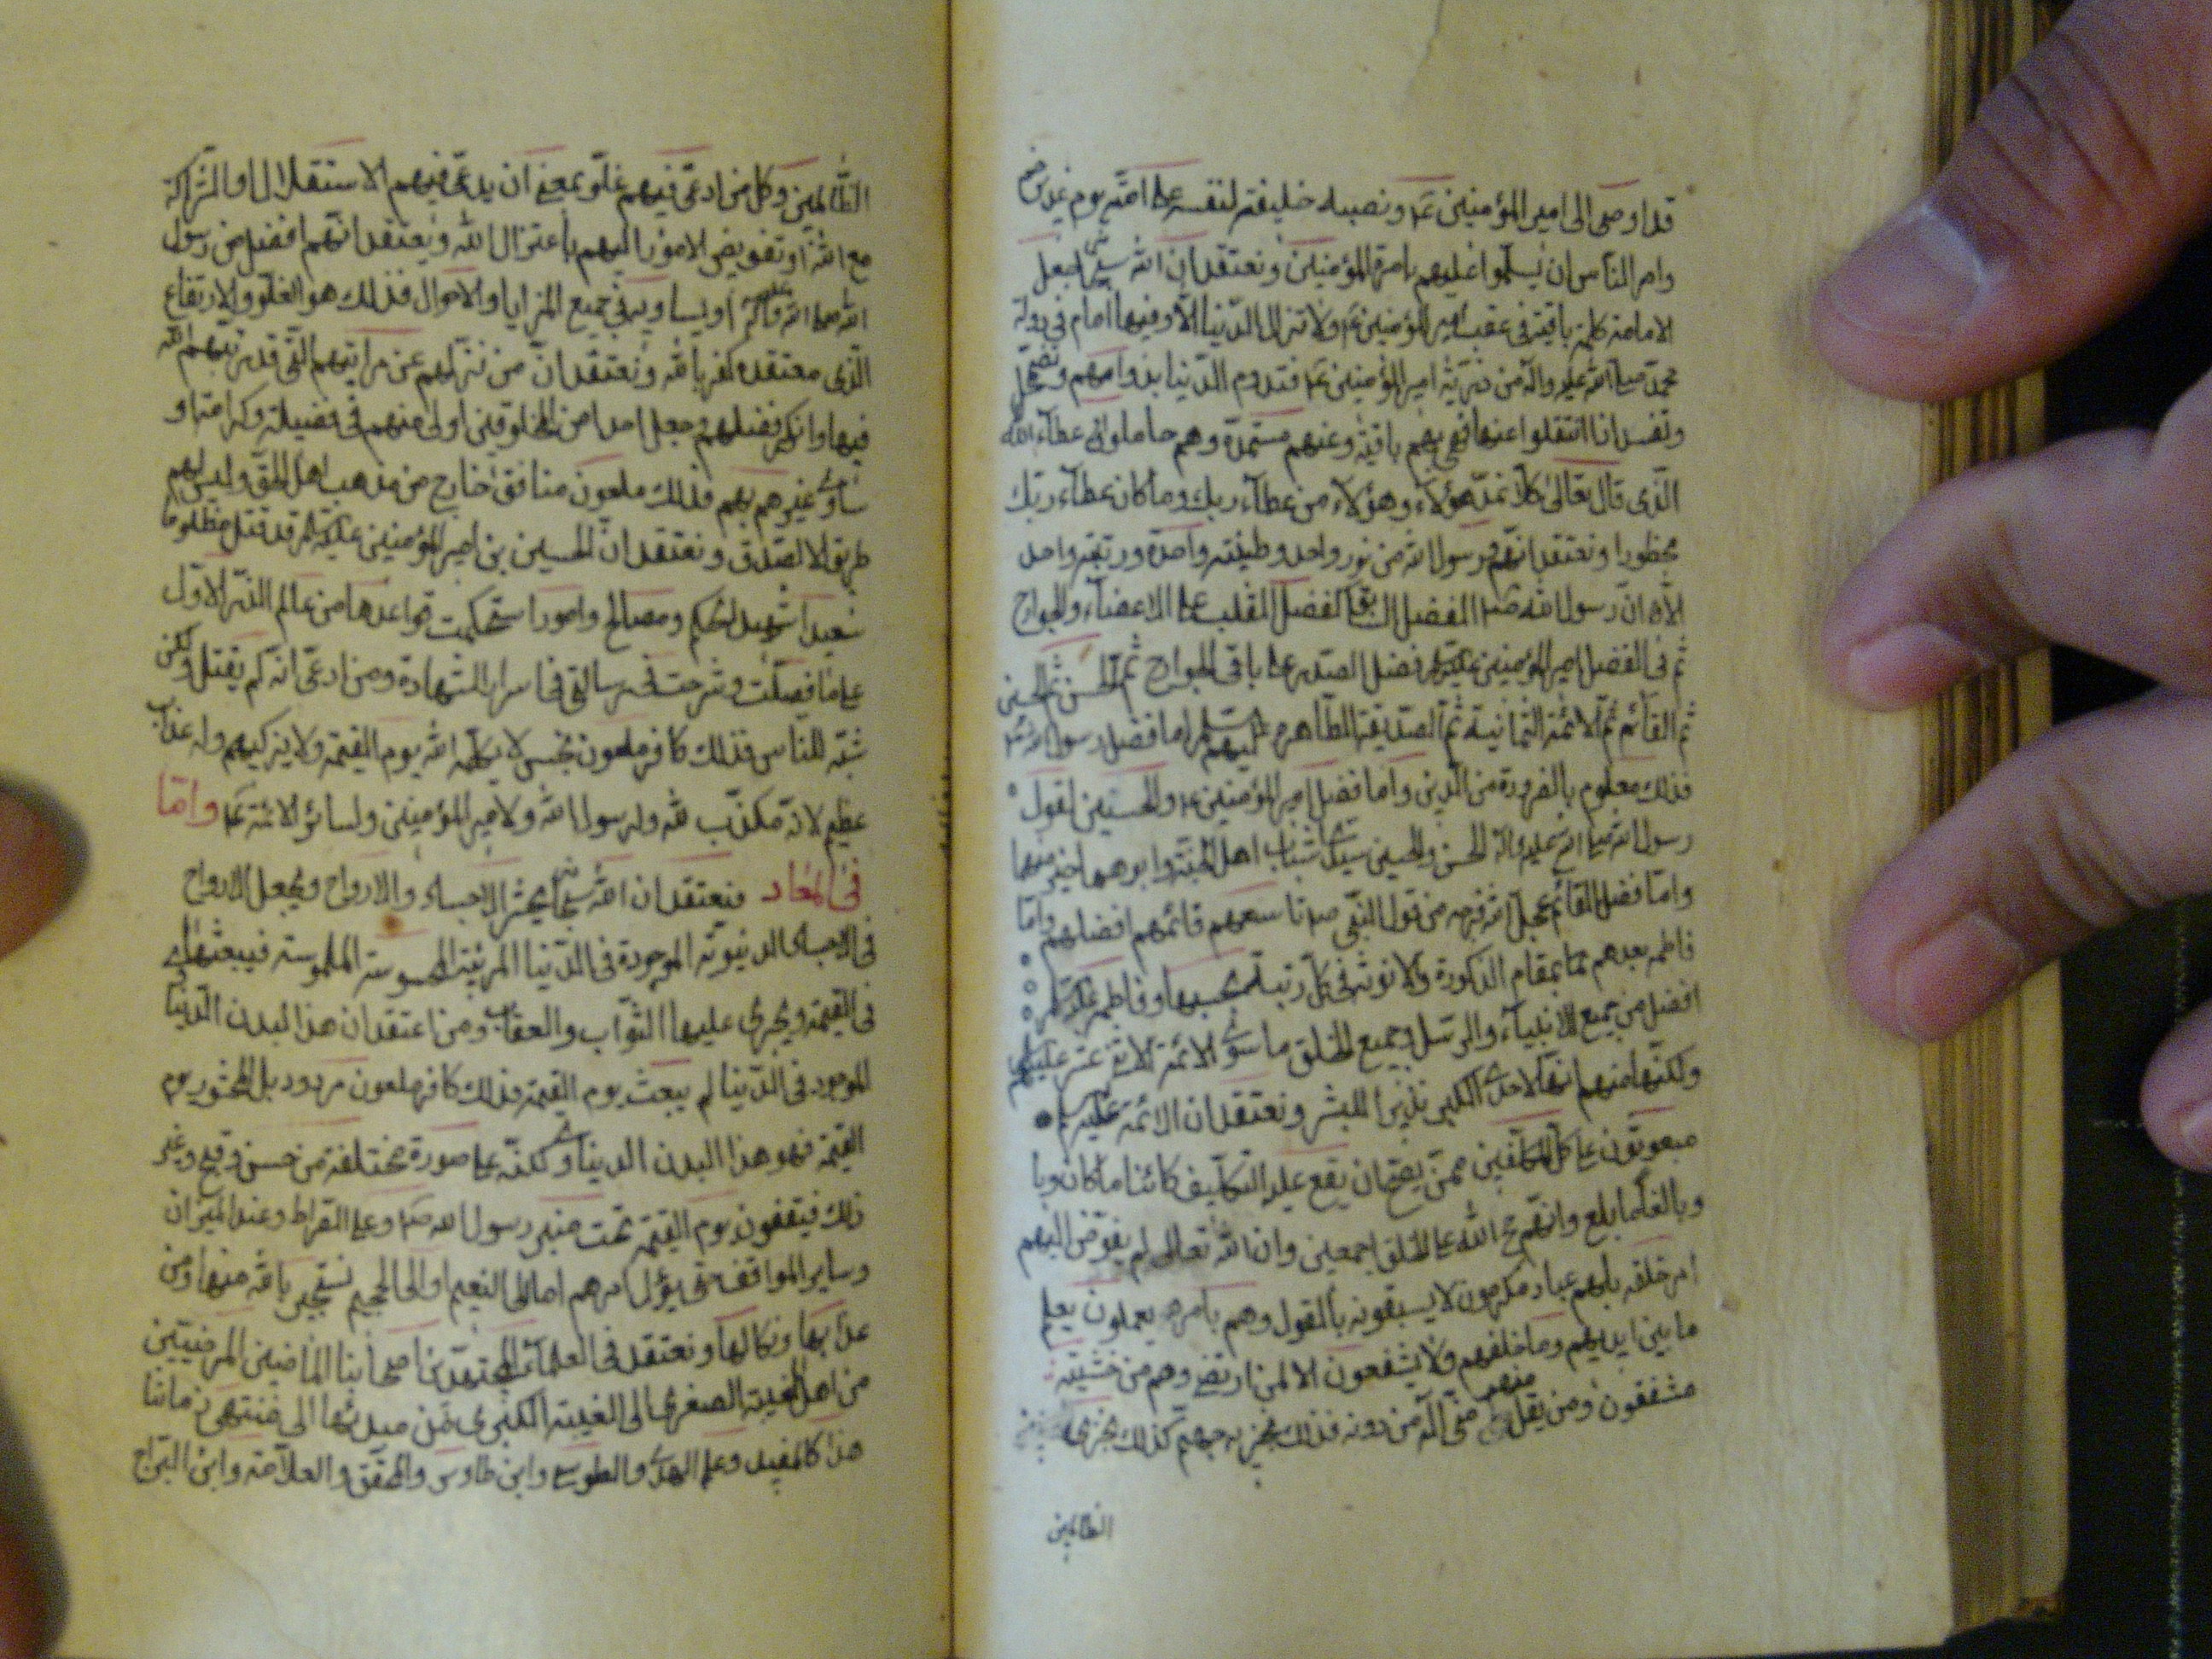 قد اوصى الى امير المؤمنين ع ونصبه خليفة لنفسه على امته يوم غدير خم
وامر الناس ان يسلموا عليهم بامرة المؤمنين ونعتقد ان الله سبحانه جعل
الامامة كلمة باقية في عقب امير المؤمنين ع ولا تزال الدنيا الا وفيها امام في دولة
محمد صلى الله عليه واله من ذرية امير المؤمنين ع فتدوم الدنيا بدوامهم وتضمحل
وتفسد اذا انتقلوا عنها فهي بهم باقية وعنهم مستمدة وهم حاملوا عطاء الله
الذى قال تعالى كلا نمد هؤلاء وهؤلاء من عطاء ربك وما كان عطاء ربك
محظورا ونعتقد انهم ورسول الله من نور واحد وطينته واحدة ورتبته واحد
الا ان رسول الله ص له الفضل كفضل القلب على الاعضاء والجوارح
ثم في الفضل امير المؤمنين عليه السلام فضل الصدر على باقي الجوارح ثم الحسن ثم الحسين
ثم القائم ثم الائمة الثمانية ثم الصديقة الطاهرة عليهم السلام اما فضل رسول الله ص
فذلك معلوم بالضرورة من الدين واما فضل امير المؤمنين ع والحسنين لقول
رسول الله صلى الله عليه واله الحسن والحسين سيدا شباب اهل الجنة وابوهما خير منهما
واما فضل القائم عجل الله فرجه من قول النبي ص تاسعهم قائمهم افضلهم واما
فاطمه بعدهم بمقام الذكورة والانوثة في كل رتبة بحسبها وفاطمة عليها السلام
افضل من جميع الانبياء والرسل وجميع الخلق ما سوى الائمة الاثنى عشر عليهم
ولكنها منهم انها لاحدى الكبر نذيرا للبشر ونعتقد ان الائمة عليهم السلام
مبعوثون على كل المكلفين ممن يصح ان يقع عليه التكليف كائنا ما كان وبا
وبالغا ما بلغ وانهم حجج الله على الخلق اجمعين وان الله تعالى لم يفوض اليهم
امر خلقه بل هم عباد مكرمون لا يسبقونه بالقول وهم بامره يعملون يعلم
ما بين ايديهم وما خلفهم ولا يشفعون الا لمن ارتضى وهم من خشيته
مشفقون ومن يقل منهم انى اله من دونه فذلك نجزيه جهنم كذلك نجزى
الظالمين
الظالمين وكل من ادعى فيهم غلو بمعنى ان يدعى فيهم الاستقلال او المشاركة
مع الله او تفويض الامور اليهم باعتزال الله ونعتقد انهم افضل من رسول
الله صلى الله عليه واله او يساويه في جميع المزايا والاحوال فذلك هو الغلو والارتفاع
الذى معتقده كفر بالله ونعتقد ان من نزلهم عن مراتبهم التى قد رتبهم الله
فيها وانكر فضلهم وجعل احدا من المخلوقين اولى منهم في فضيلة وكرامة او
ساوى غيرهم بهم فذلك ملعون منافق خارج من مذهب اهل الحق وليس لهم
طريق الا الصدق ونعتقد ان الحسين بن امير المؤمنين عليه السلام قد قتل مظلوما
سعيدا شهيد لحكم ومصالح وامور استحكمت قواعدها من عالم الذر الاول
على ما فصلت وشرحت في رسالتى في اسرار الشهادة ومن ادعى انه لم يقتل ولكن
شبه للناس فذلك كافر ملعون نجس لا يكلمه الله يوم القيمة ولا يزكيهم وله عذاب
عظيم لانه مكذب لله ولرسول الله ولامير المؤمنين ولسائر الائمة ع واما
في المعاد فنعتقد ان الله سبحانه يحشر الاجساد والارواح ويجعل الارواح
في الاجساد الدنيوية الموجودة في الدنيا المرئية المحسوسة الملموسة فيبعثها
في القيمة ويجرى عليها الثواب والعقاب ومن اعتقد ان هذا البدن الدنياوى
الموجود في الدنيا لم يبعث يوم القيمة فذلك كافر ملعون مردود بل المحشور يوم
القيمة فهو هذا البدن الدنياوى لكنه على صورة مختلفة من حسن وقبح وغير
ذلك فيقفون يوم القيمة تحت منبر رسول الله ص وعلى الصراط وعند الميزان
وساير المواقف حتى يؤل امرهم اما الى النعيم او الى الجحيم نستجير بالله منها ومن
عذابها ونكالها ونعتقد في العلماء المجتهدين اصحابنا الماضين المرضيين
من اهل الغيبة الصغرى الى الغيبة الكبرى من مبدئها الى منتهى زماننا
هذا كالمفيد وعلم الهدى والطوسى وابن طاوس والمحقق والعلامة وابن البراج